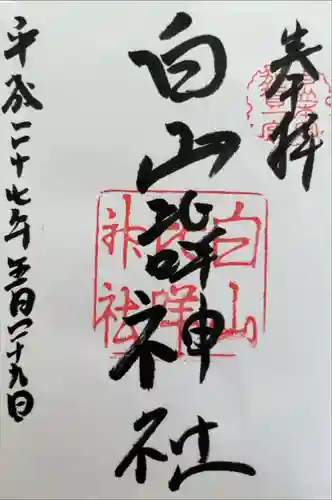 奉拝
白山比咩神社
平成二十七年五月二十九日
白山
比咩
神社